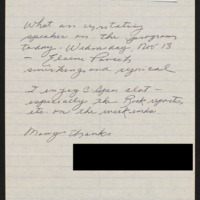 What an irritating
speaker on the program
today - Wednesday, Nov 13
- Elaine
smirking and cynical
I enjoy C Span alot -
especially the Book reports,
etc. on the weekends.
Many thanks